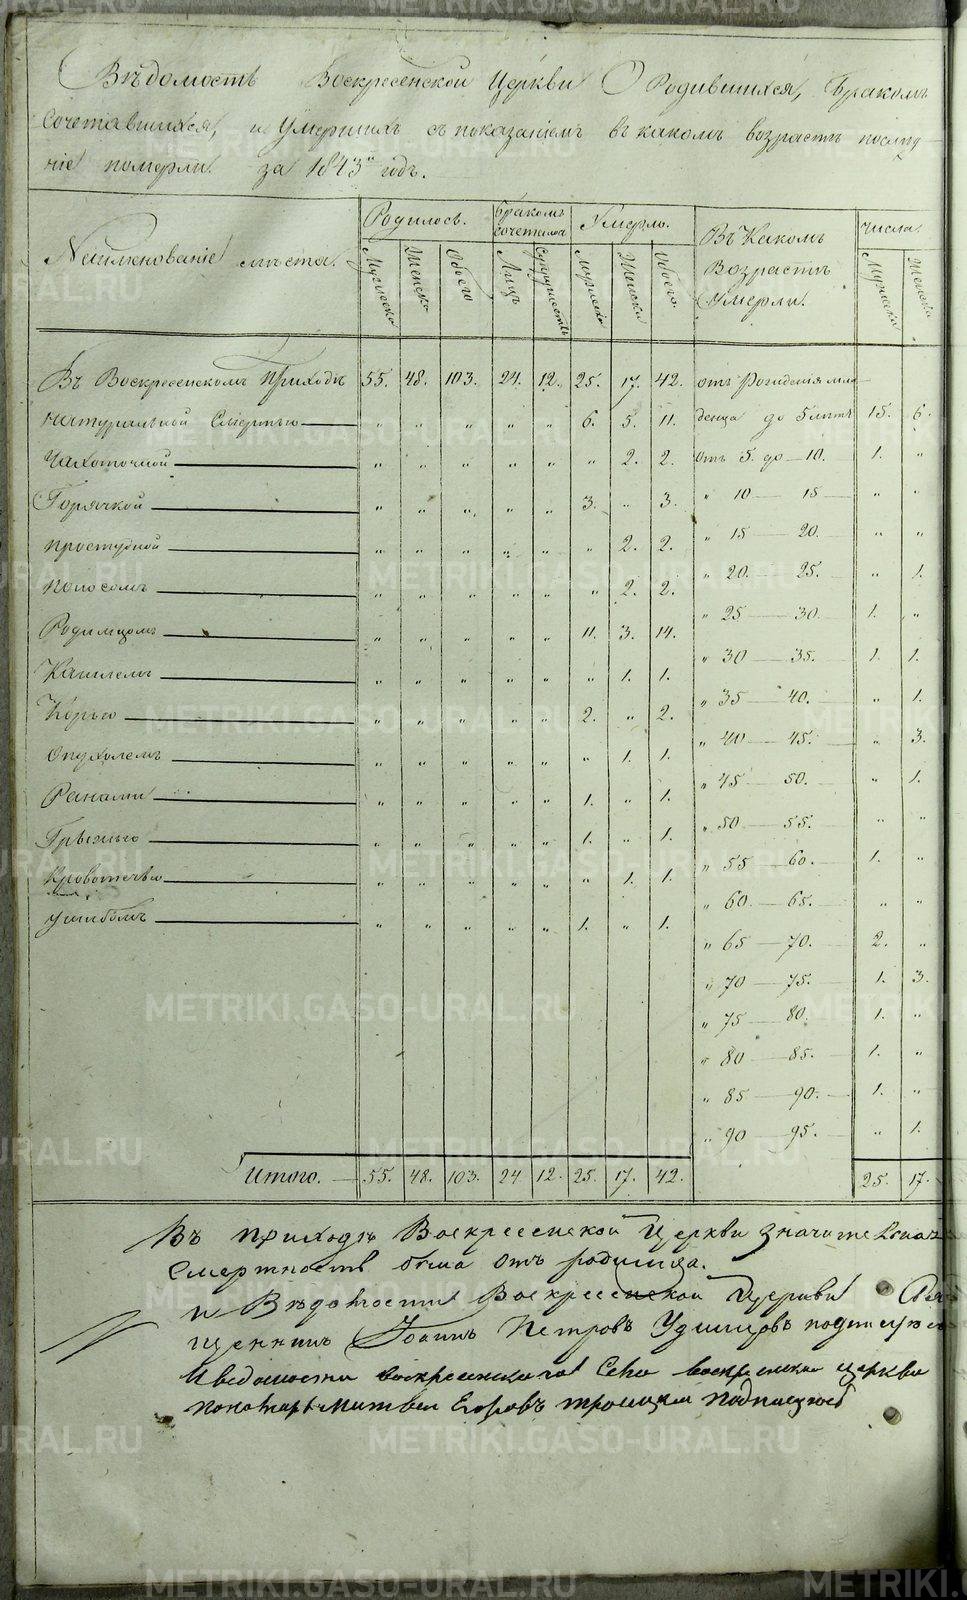 Вѣдомость Воскресенской Церкви О Родившихся, Бракомъ
сочетавшихся, и Умершихъ съ показаніемъ въ какомъ возрастѣ послѣд-
ніе померли за 1843й годъ.
Наимѣнованіе мѣста. Родилось. Бракомъ сочеталось Умерло. Въ Какомъ Возрастѣ Умерли. Числа.
Мужеска Женска Обоего Лицъ Супружествъ Мужеска Женска Обоего. Мужеска Женска
Въ Воскресенскомъ Приходѣ 55. 48. 103. 24. 12. 25. 17. 42. отъ Рожденія мла-
натуральной Смертью „ „ „ „ „ 6. 5. 11. денца до 5 лѣтъ 15. 6.
Чахоточной „ „ „ „ „ „ 2. 2. отъ 5. до 10. 1. „
Горячкой „ „ „ „ „ 3. „ 3. „ 10 15 „ „
простудной „ „ „ „ „ „ 2. 2. „ 15 20. „ „
поносомъ „ „ „ „ „ „ 2. 2. „ 20. 25. „ 1.
Родимцомъ „ „ „ „ „ 11. 3. 14. „ 25 30. 1. „
Кашлемъ „ „ „ „ „ „ 1. 1. „ 30 35. 1. 1.
Корью „ „ „ „ „ 2. „ 2. „ 35 40. „ 1.
Опухолемъ „ „ „ „ „ „ 1. 1. „ 40 45. „ 3.
Ранами „ „ „ „ „ 1. „ 1. „ 45 50. „ 1.
Грыжью „ „ „ „ „ 1. „ 1. „ 50 55. „ „
Кровотечью „ „ „ „ „ „ 1. 1. „ 55 60. 1. „
Ушибомъ „ „ „ „ „ 1. „ 1. „ 60. 65. „ „
„ 65 70. 2. „
„ 70 75. 1. 3.
„ 75 80. 1. „
„ 80 85. 1. „
„ 85 90. 1. „
„ 90 95. „ 1.
Итого. 55. 48. 103. 24 12. 25. 17. 42. 25. 17.
Въ приходѣ Воскресенской Церкви значительная
Смертность была отъ родимца.
и Вѣдомости Воскресенской Церкви Свя
щенникъ Іоаннъ Петровъ Удинцовъ подписуюсь
Иведомости воскресенскаго Села воскресенской церкви
пономарь Матвеи Егоровъ троицкой подписуюсь
METRIKI.GASO-URAL.RU